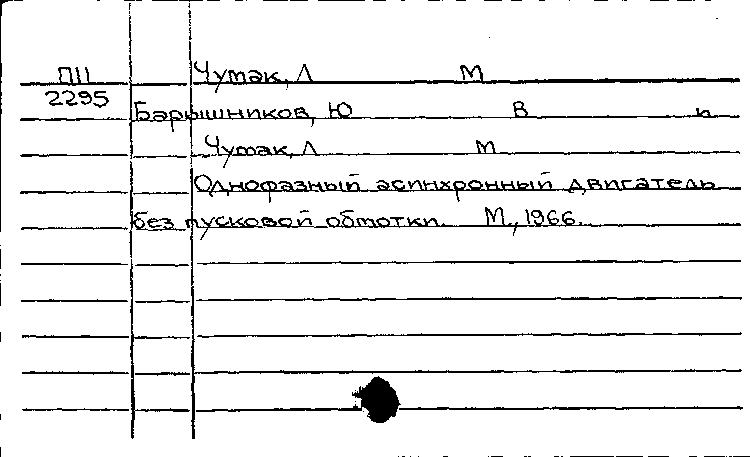 П11 Чумак, Л М
2295
Барышников, Ю В и
Чумак, Л М
Однофазный асинхронный двигатель
без пусковой обмотки. М., 1966.